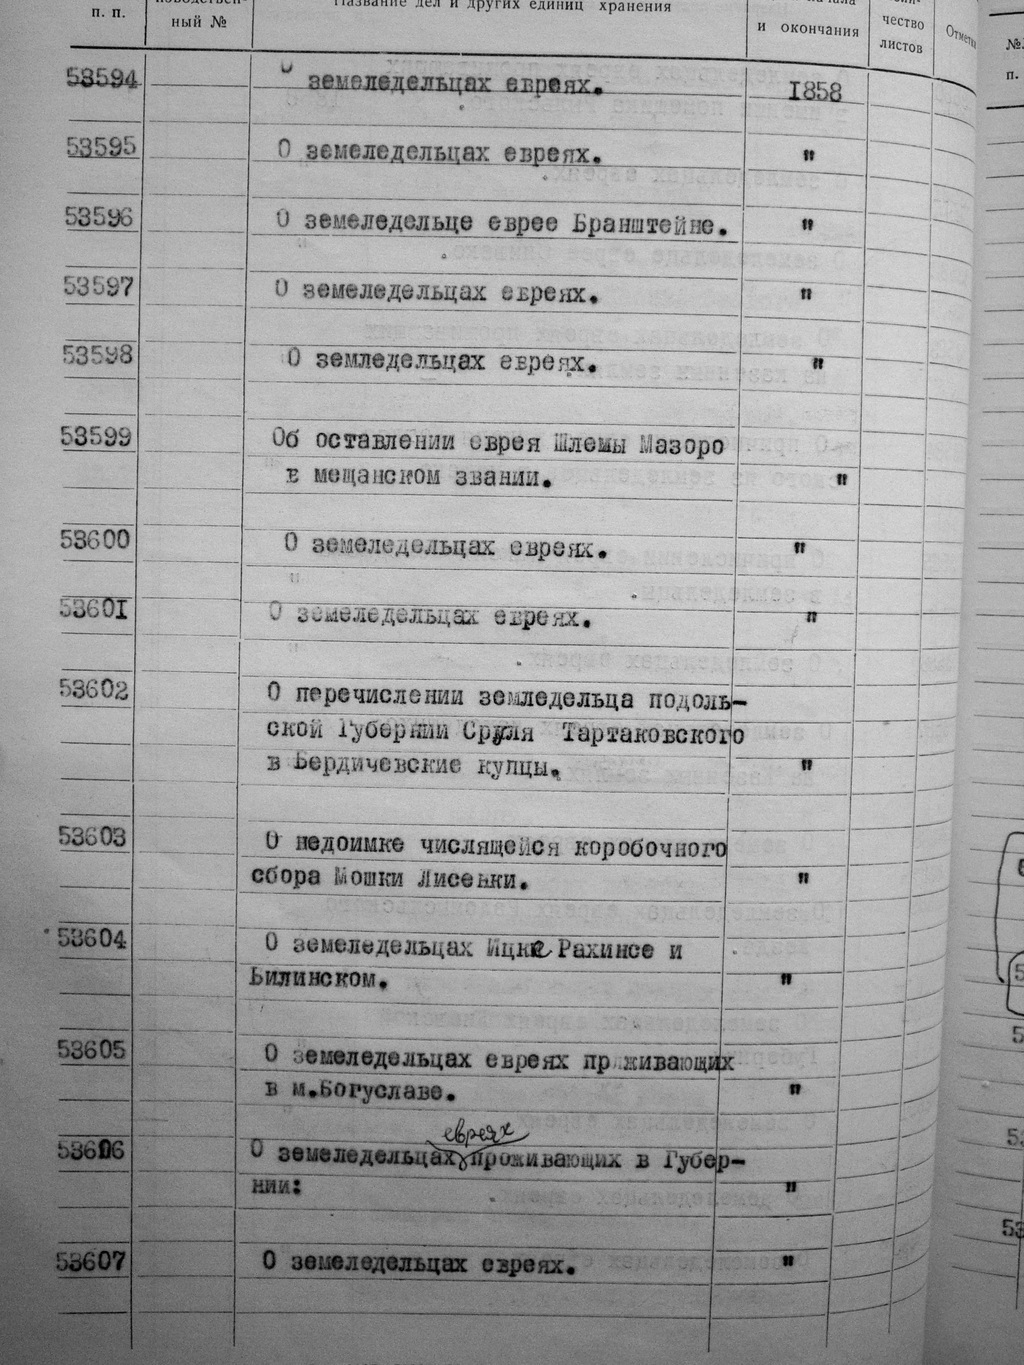 п. п.
ный №
Название дел и других единиц хранения
и окончания
чество
листов
Отметк
№
п.
53594 О земеледельцах евреях. 1858
53595 О земеледельцах евреях. "
53596 О земеледельце еврее Бранштейне. "
53597 О земеледельцах евреях. "
53598 О земледельцах евреях. "
53599 Об оставлении еврея Шлемы Мазоро
в мещанском звании. "
53600 О земеледельцах евреях. "
53601 О земеледельцах евреях. "
53602 О перечислении земледельца подоль-
ской Губернии Сруля Тартаковского
в Бердичевские купцы. "
53603 О недоимке числящейся коробочного
сбора Мошки Лисенки. "
53604 О земеледельцах Ицке Рахинсе и
Билинском. "
53605 О земеледельцах евреях пр живающих
в м.Богуславе. "
евреях
53606 О земеледельцах проживающих в Губер-
нии: "
53607 О земеледельцах евреях. "